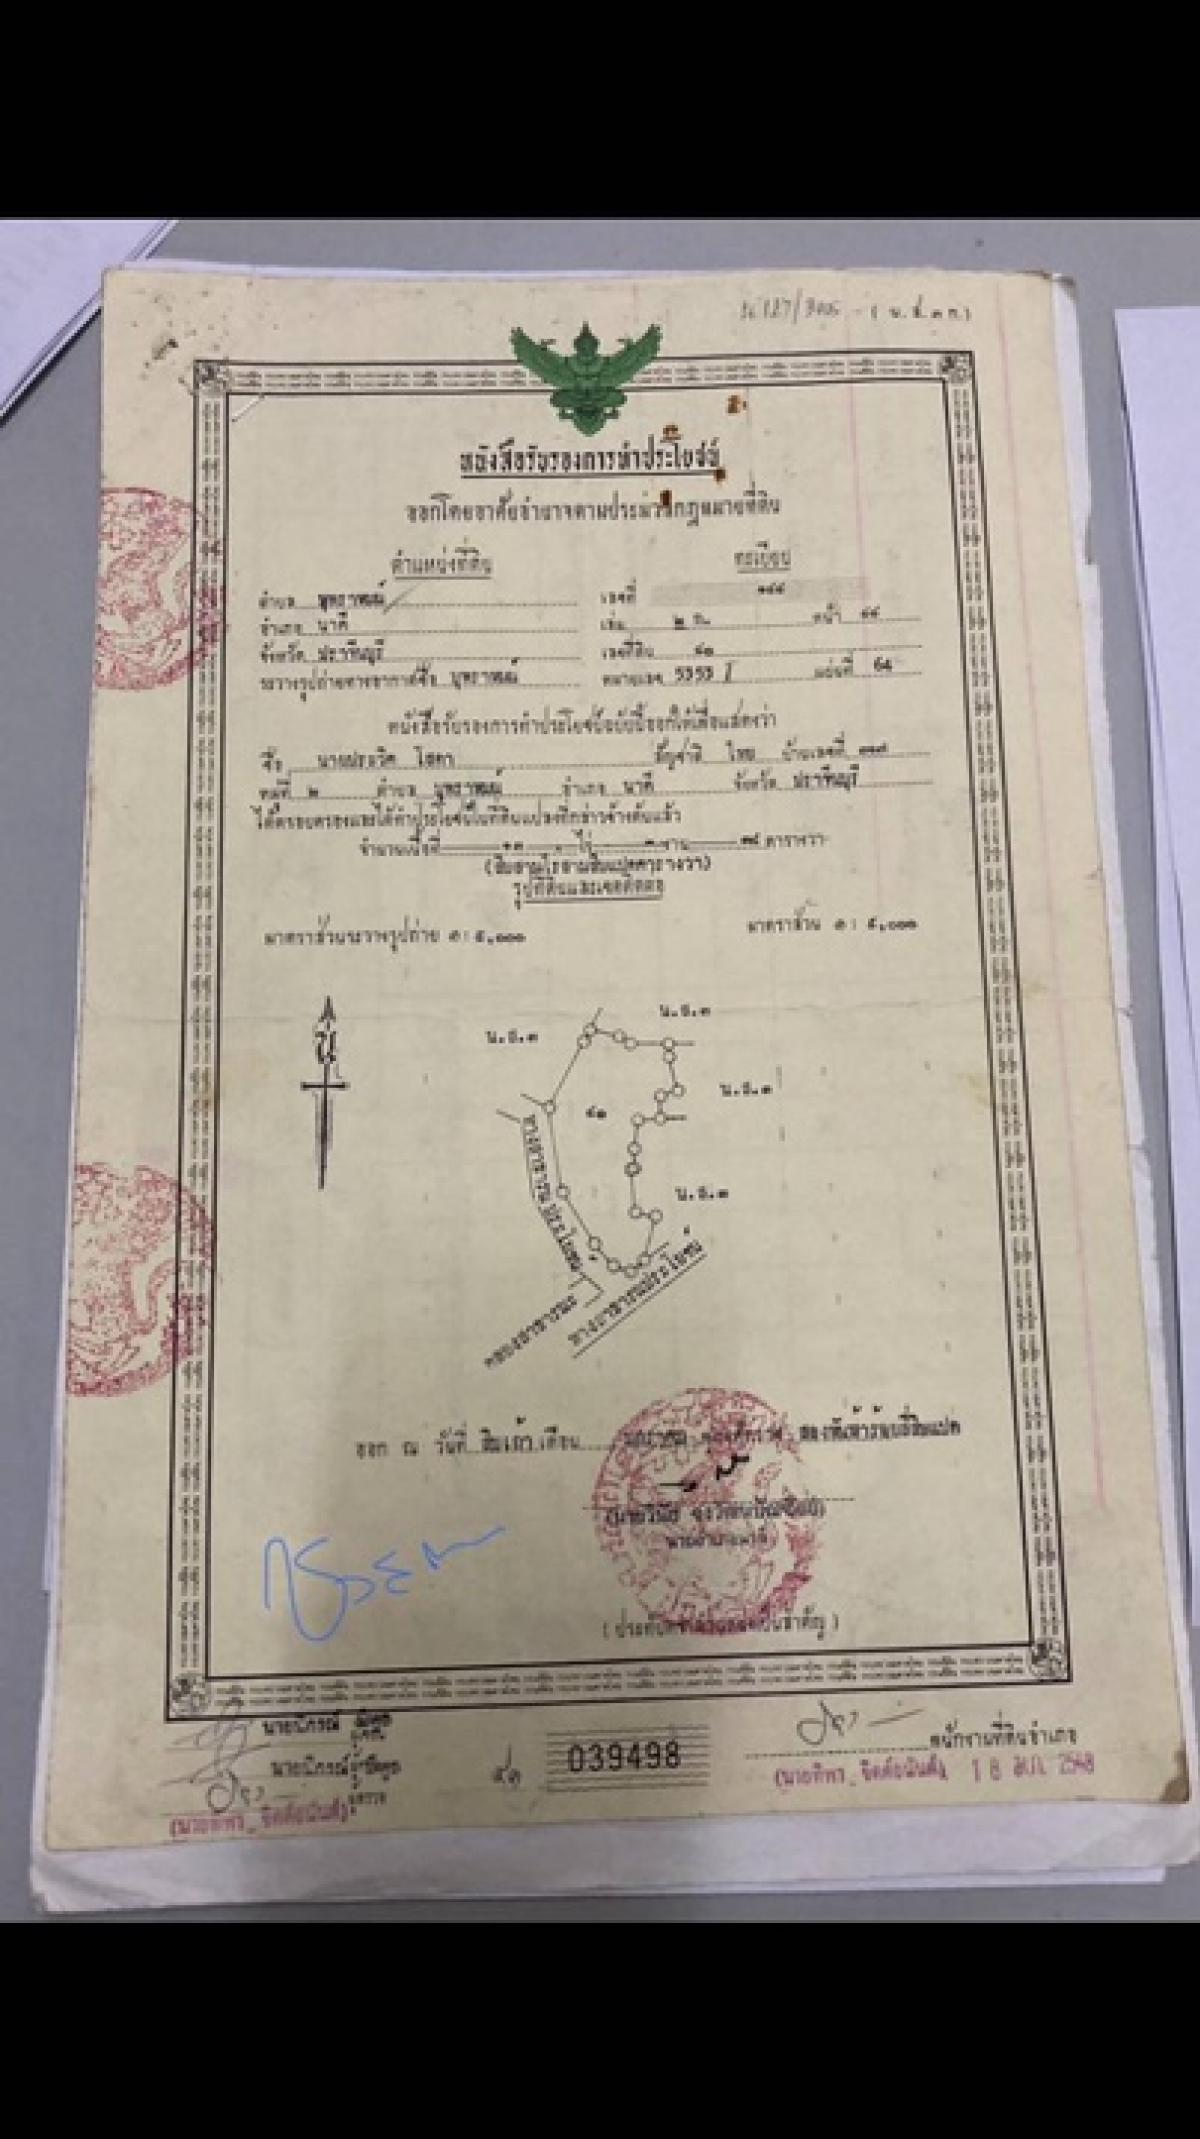 (น.ส.๓ ก.)
หนังสือรับรองการทำประโยชน์
ออกโดยอาศัยอำนาจตามประมวลกฎหมายที่ดิน
ตำแหน่งที่ดิน ทะเบียน
ตำบล บุพราหมณ์ เลขที่ ๑๔๔
อำเภอ นาดี เล่ม ๒ ก. หน้า ๔๔
จังหวัด ปราจีนบุรี เลขที่ดิน ๔๑
ระวางรูปถ่ายทางอากาศชื่อ บุพราหมณ์ หมายเลข 5353 I แผ่นที่ 64
หนังสือรับรองการทำประโยชน์ฉบับนี้ออกให้เพื่อแสดงว่า
ชื่อ นางประเวิศ โสดา สัญชาติ ไทย บ้านเลขที่
หมู่ที่ ๒ ตำบล บุพราหมณ์ อำเภอ นาดี จังหวัด ปราจีนบุรี
ได้ครอบครองและได้ทำประโยชน์ในที่ดินแปลงที่กล่าวข้างต้นแล้ว
จำนวนเนื้อที่ ๑๓ ไร่ ๓ งาน ๑๘ ตารางวา
(สิบสามไร่สามงานสิบแปดตารางวา)
รูปที่ดินและเขตติดต่อ
มาตราส่วนระวางรูปถ่าย ๑:๕,๐๐๐ มาตราส่วน ๑:๕,๐๐๐
น
น.ส.๓
น.ส.๓
๔๑
น.ส.๓
น.ส.๓
ทางสาธารณประโยชน์
คลองสาธารณะ
ทางสาธารณประโยชน์
ออก ณ วันที่ สิบเก้า เดือน พุทธศักราช สองพันห้าร้อยสี่สิบแปด
นายอำเภอนาดี
(ประทับตราประจำตำแหน่งเป็นสำคัญ)
นายนิกรณ์
นายนิกรณ์
039498
พนักงานที่ดินอำเภอ
(นายทิพา จิตต์อนันต์) 18
(นายทิพา จิตต์อนันต์) ผู้ตรวจ